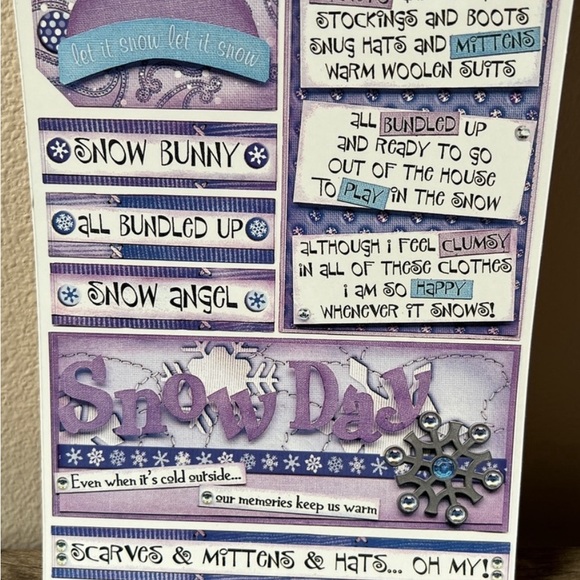 let it snow let it snow
SNOW BUNNY
ALL BUNDLED UP
SNOW ANGEL
STOCKINGS AND BOOTS
SNUG HATS AND MITTENS
WARM WOOLEN SUITS
ALL BUNDLED UP
AND READY TO GO
OUT OF THE HOUSE
TO PLAY IN THE SNOW
ALTHOUGH I FEEL CLUMSY
IN ALL OF THESE CLOTHES
I AM SO HAPPY
WHENEVER IT SNOWS!
Snow Day
Even when it's cold outside...
our memories keep us warm
SCARVES & MITTENS & HATS... OH MY!